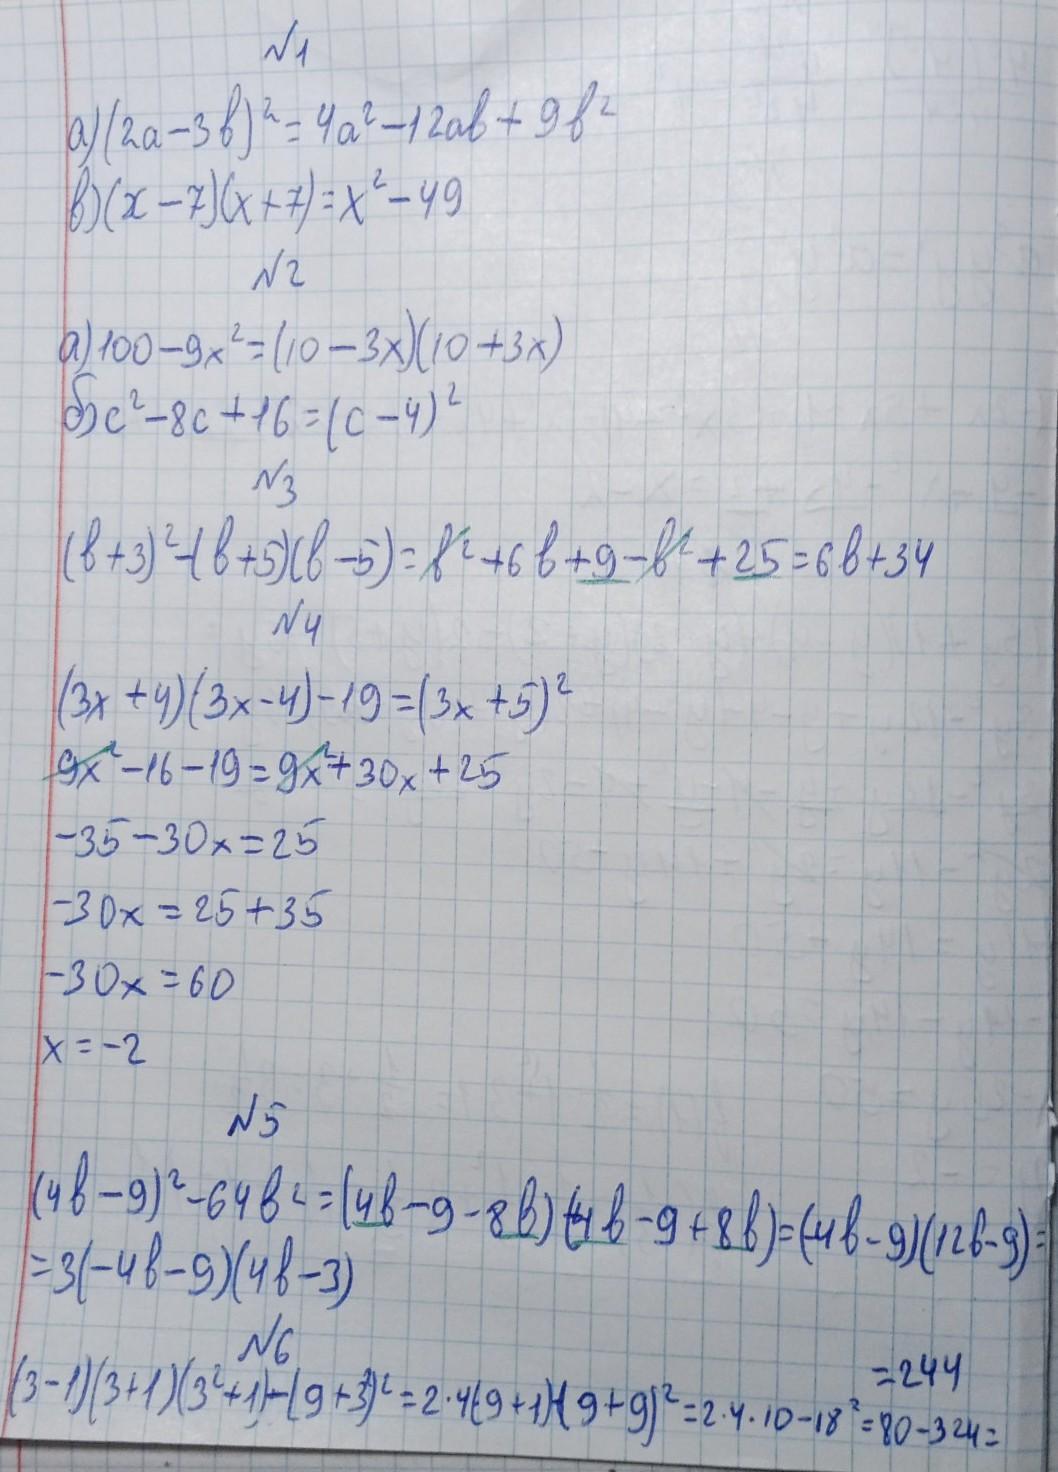 №1
а)(2a-3b)²=4a²-12ab+9b²
в)(x-7)(x+7)=x²-49
№2
а)100-9x²=(10-3x)(10+3x)
б)c²-8c+16=(c-4)²
№3
(b+3)²-(b+5)(b-5)=b²+6b+9-b²+25=6b+34
№4
(3x+4)(3x-4)-19=(3x+5)²
9x²-16-19=9x²+30x+25
-35-30x=25
-30x=25+35
-30x=60
x=-2
№5
(4b-9)²-64b²=(4b-9-8b)(4b-9+8b)=(-4b-9)(12b-9)=
=3(-4b-9)(4b-3)
№6
(3-1)(3+1)(3²+1)-(9+3²)²=2·4(9+1)-(9+9)²=2·4·10-18²=80-324=
=244